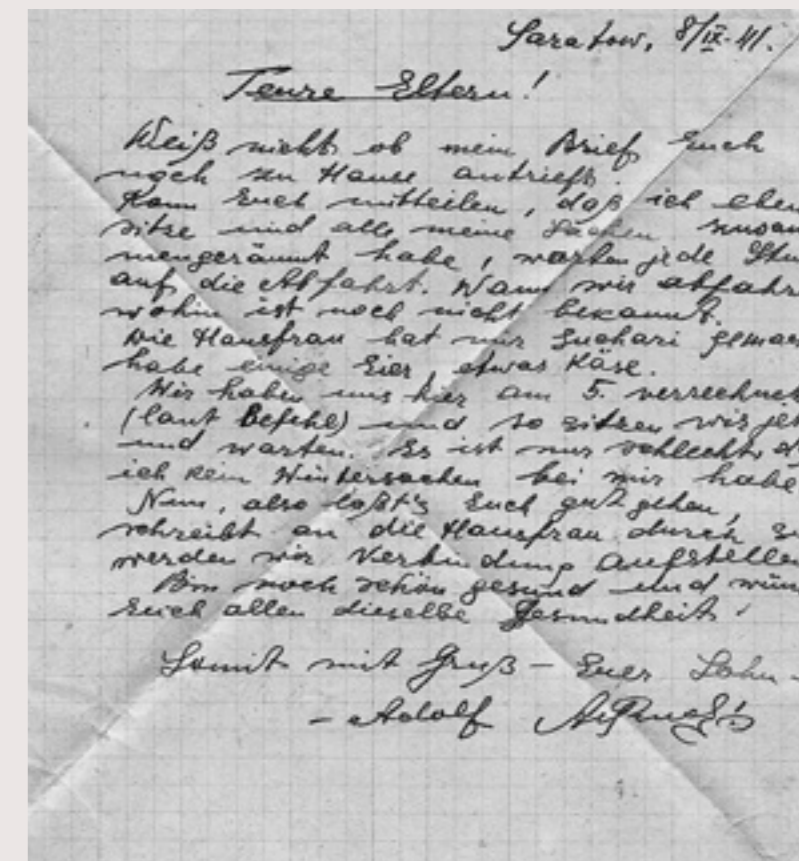 Saratow, 8/IX-41.
Teure Eltern!
Weiß nicht ob mein Brief Euch
noch zu Hause antrieft.
Kann Euch mitteilen, daß ich eben
sitze und alle meine Sachen zusam
mengeräumt habe, warten jede Stu
auf die Abfahrt. Wann wir abfahr
wohin ist noch nicht bekannt.
Die Hausfrau hat mir Suchari gemac
habe einige Eier, etwas Käse.
Wir haben uns hier am 5. verrechnet
(laut Befehl) und so sitzen wir jet
und warten. Es ist nur schlecht, d
ich kein Wintersachen bei mir habe
Nun, also laßt's Euch gut gehen,
schreibt an die Hausfrau durch s
werden wir Verbindung aufstellen
Bin noch schön gesund und wün
Euch allen dieselbe Gesundheit!
Somit mit Gruß – Euer Sohn –
– Adolf